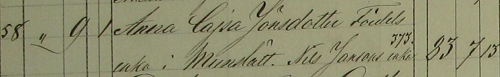 58 " 9 1 Anna Cajsa Jönsdotter Födels
enka i Munslätt. Nils Jonsons enka 373. 83 7 15